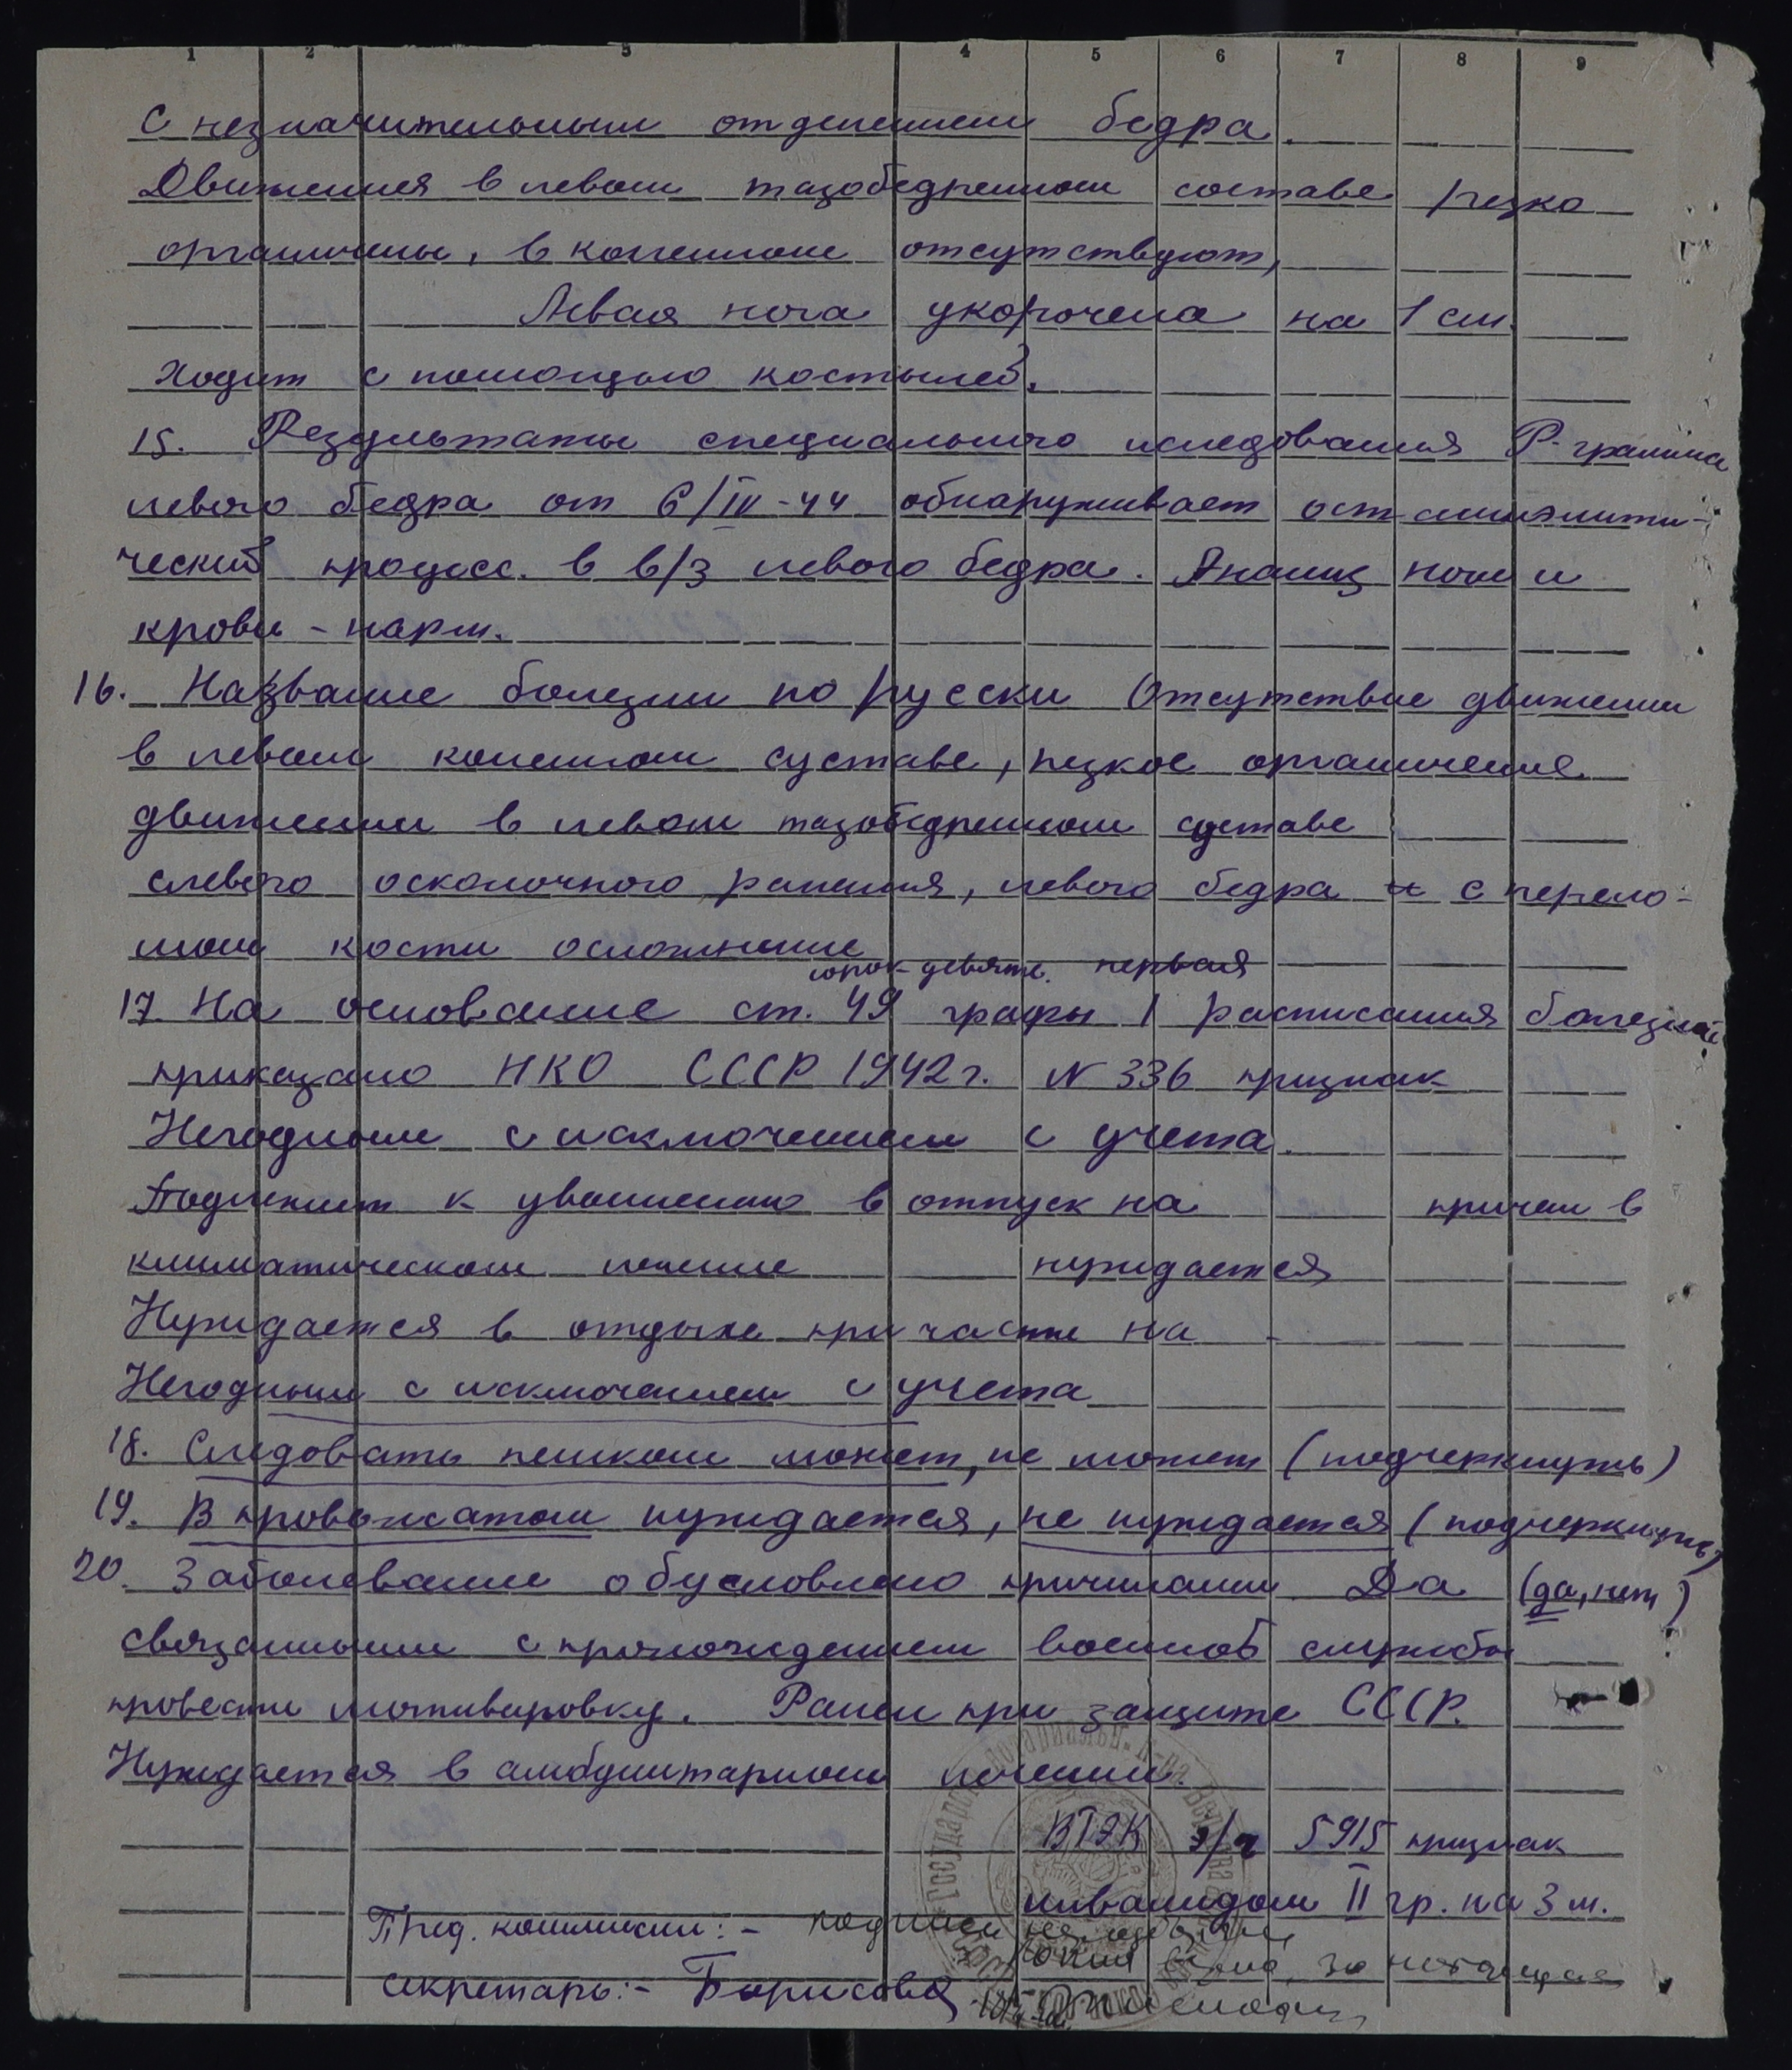 1 2 3 4 5 6 7 8 9
С незначительным отделением бедра.
Движения в левом тазобедренном составе резко
ограничены, в коленном отсутствуют,
Левая нога укорочена на 1 см.
Ходит с помощью костылей.
15. Результаты специального иследования Р-грамма
левого бедра от 6/IV-44 обнаруживает остеомиэлити-
ческий процесс. в в/з левого бедра. Анализ мочи и
крови - нарм.
16. Название болезни по русски Отсутствие движении
в левом коленном суставе, резкое ограничение
движении в левом тазобедренном суставе
слевого осколочного ранения, левого бедра с перело-
мом кости осложнение
сорок девяте. первая
17. На основание ст. 49 графы 1 расписания болезней
приказано НКО СССР 1942 г. N 336 признак
Негодным с исключением с учета
Подлежит к увольнению в отпуск на причем в
климатическом лечение нуждается
Нуждается в отдыхе при части на -
Негодным с исключением с учета
18. Следовать пешком может, не может (подчеркнуть)
19. В провожатом нуждается, не нуждается (подчеркнуть)
20. Заболевание обусловлено причинами Да (да, нет)
связанными с прохождением военной службы
провести мотивировку. Ранен при защите СССР.
Нуждается в амбулитарном лечении.
ВТЭК э/г 5915 признак
инвалидом II гр. на 3 м.
Пред. комиссии: - подписи
секретарь: - Борисова